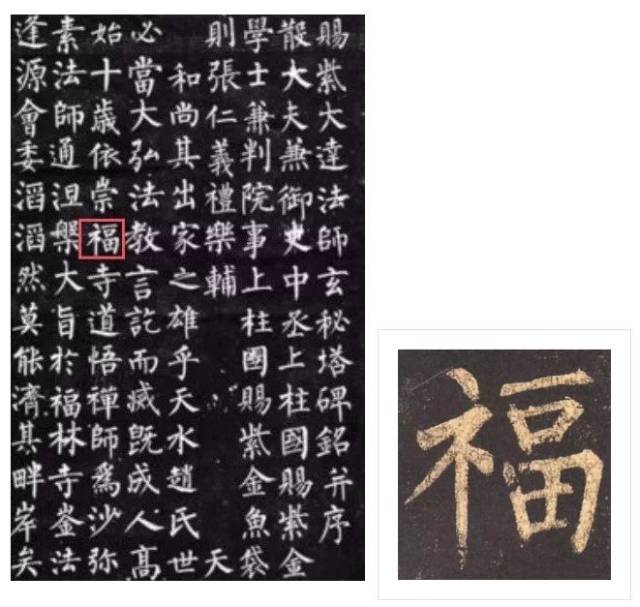 賜紫大達法師玄秘塔碑銘并序
散大夫兼御史中丞上柱國賜紫金
學士兼判院事上柱國賜紫金魚袋
則張仁義禮樂輔 天
和尚其出家之雄乎天水趙氏世
必當大弘法教言訖而滅既成人高
始十歲依崇福寺道悟禪師爲沙弥
素法師通涅槃大旨於福林寺崟法
逢源會委滔滔然莫能濟其畔岸矣
福